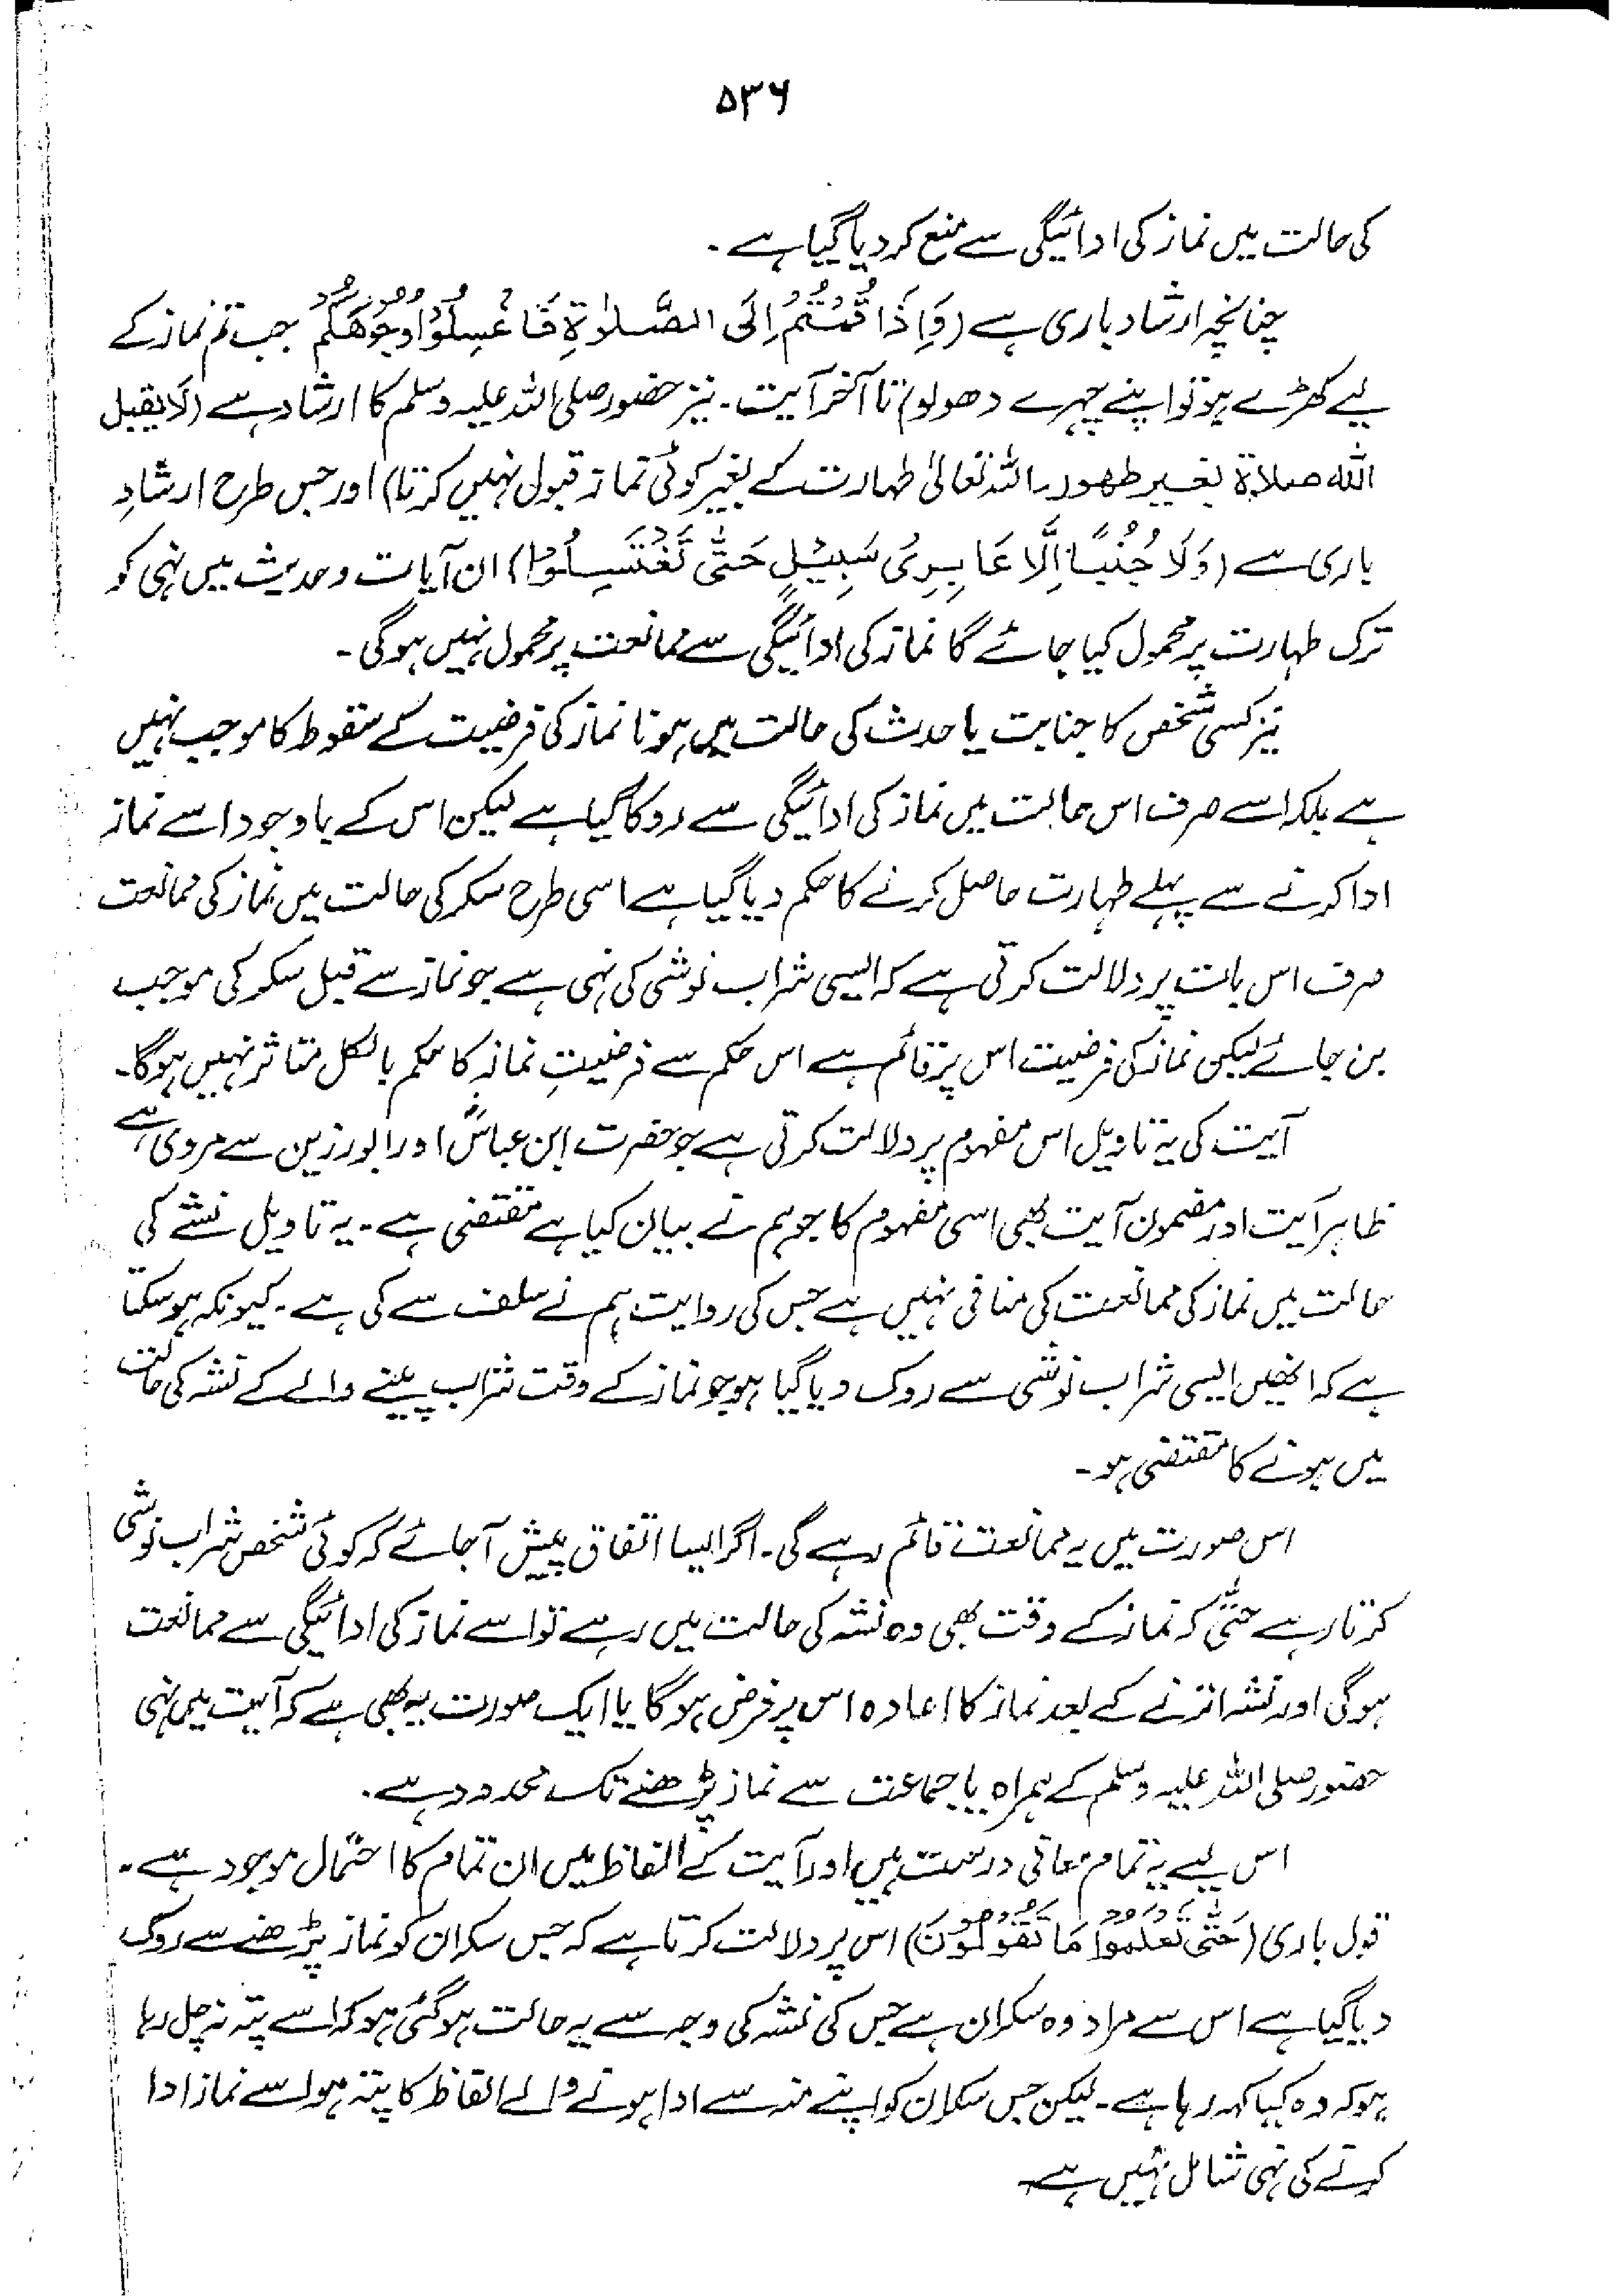 ۵۳۶
کی حالت میں نماز کی ادائیگی سے منع کر دیا گیا ہے۔
چنانچہ ارشاد باری ہے (وَإِذَا قُمْتُمْ إِلَى الصَّلٰوةِ فَاغْسِلُوْا وُجُوْهَكُمْ جب تم نماز کے
لیے کھڑے ہو تو اپنے چہرے دھولو) تا آخر آیت۔ نیز حضور صلی اللہ علیہ وسلم کا ارشاد ہے (لَا يقبل
الله صلاة بغير طهور۔ اللہ تعالیٰ طہارت کے بغیر کوئی نماز قبول نہیں کرتا) اور جس طرح ارشادِ
باری ہے (وَلَا جُنُبًا إِلَّا عَابِرِىْ سَبِيْلٍ حَتّٰى تَغْتَسِلُوْا) ان آیات و حدیث میں نہی کو
ترک طہارت پر محمول کیا جائے گا نماز کی ادائیگی سے ممانعت پر محمول نہیں ہوگی۔
نیز کسی شخص کا جنابت یا حدث کی حالت میں ہونا نماز کی فرضیت کے سقوط کا موجب نہیں
ہے بلکہ اسے صرف اس حالت میں نماز کی ادائیگی سے روکا گیا ہے لیکن اس کے باوجود اسے نماز
ادا کرنے سے پہلے طہارت حاصل کرنے کا حکم دیا گیا ہے اسی طرح سکر کی حالت میں نماز کی ممانعت
صرف اس بات پر دلالت کرتی ہے کہ ایسی شراب نوشی کی نہی ہے جو نماز سے قبل سکر کی موجب
بن جائے لیکن نماز کی فرضیت اس پر قائم ہے اس حکم سے فرضیتِ نماز کا حکم بالکل متاثر نہیں ہوگا۔
آیت کی یہ تاویل اس مفہوم پر دلالت کرتی ہے جو حضرت ابن عباسؓ اور ابورزین سے مروی ہے
ظاہر آیت اور مضمون آیت بھی اسی مفہوم کا جو ہم نے بیان کیا ہے مقتضی ہے۔ یہ تاویل نشے کی
حالت میں نماز کی ممانعت کی منافی نہیں ہے جس کی روایت ہم نے سلف سے کی ہے۔ کیونکہ ہو سکتا
ہے کہ انھیں ایسی شراب نوشی سے روک دیا گیا ہو جو نماز کے وقت شراب پینے والے کے نشہ کی حالت
میں ہونے کا مقتضی ہو۔
اس صورت میں یہ ممانعت قائم رہے گی۔ اگر ایسا اتفاق پیش آجائے کہ کوئی شخص شراب نوشی
کرتا رہے حتّٰی کہ نماز کے وقت بھی وہ نشہ کی حالت میں رہے تو اسے نماز کی ادائیگی سے ممانعت
ہوگی اور نشہ اترنے کے بعد نماز کا اعادہ اس پر فرض ہوگا یا ایک صورت یہ بھی ہے کہ آیت میں نہی
حضور صلی اللہ علیہ وسلم کے ہمراہ باجماعت سے نماز پڑھنے تک محدود ہے۔
اس لیے یہ تمام معانی درست ہیں اور آیت کے الفاظ میں ان تمام کا احتمال موجود ہے۔
قول باری (حَتّٰى تَعْلَمُوْا مَا تَقُوْلُوْنَ) اس پر دلالت کرتا ہے کہ جس سکران کو نماز پڑھنے سے روک
دیا گیا ہے اس سے مراد وہ سکران ہے جس کی نشہ کی وجہ سے یہ حالت ہو گئی ہو کہ اسے پتہ نہ چل رہا
ہو کہ وہ کیا کہہ رہا ہے۔ لیکن جس سکران کو اپنے منہ سے ادا ہونے والے الفاظ کا پتہ ہو اسے نماز ادا
کرنے کی نہی شامل نہیں ہے۔